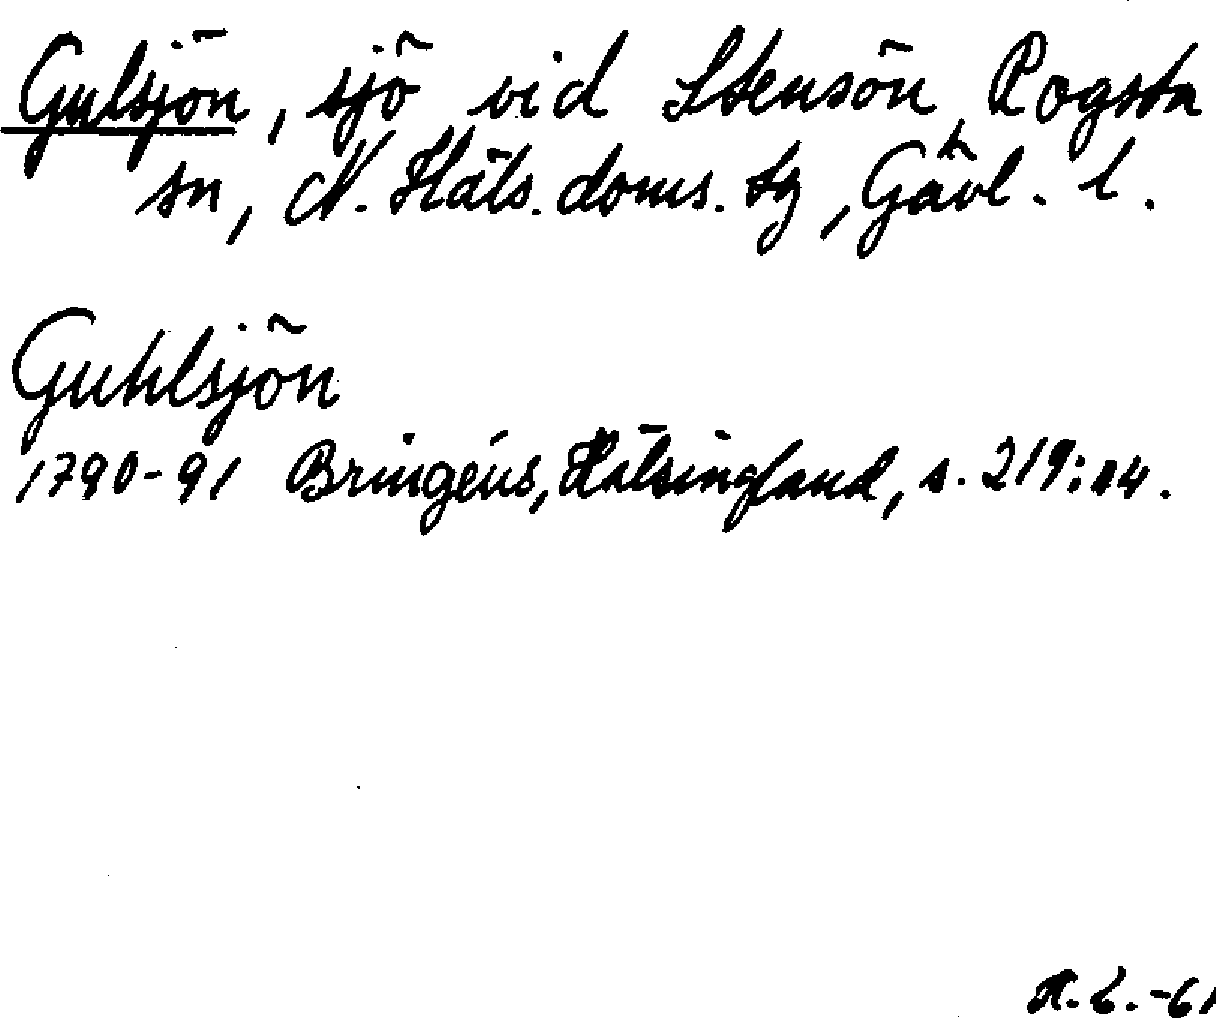 Gulsjön, sjö vid Stensön, Rogsta
sn, N. Häls. doms. sg, Gävl. l.
Guhlsjön
1790-91 Bringéus, Hälsingland, s. 219: 14.
-61